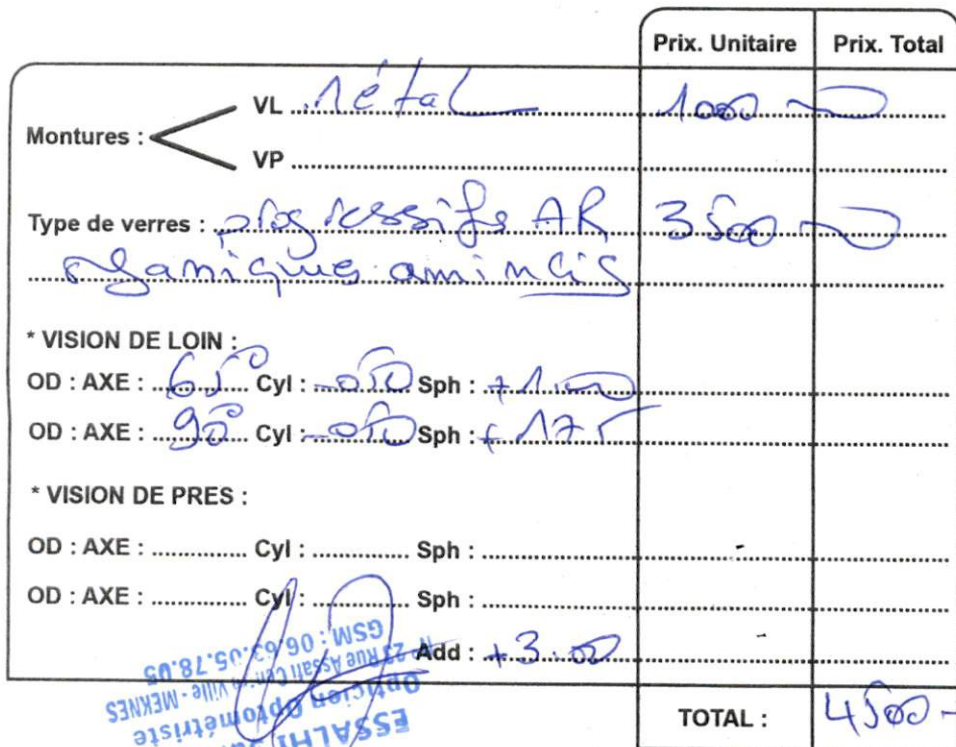 Prix. Unitaire Prix. Total
Montures :
VL Métal 1000
VP
Type de verres : progressifs AR 3500
organiques amincis
* VISION DE LOIN :
OD : AXE : 65° Cyl : -050 Sph : +1.00
OD : AXE : 90° Cyl : -050 Sph : +175
* VISION DE PRES :
OD : AXE : Cyl : Sph :
OD : AXE : Cyl : Sph :
Add : +3.00
TOTAL : 4500
ESSALHI
Opticien Optométriste
23 Rue Assali Ville - MEKNES
GSM : 06.63.05.78.05